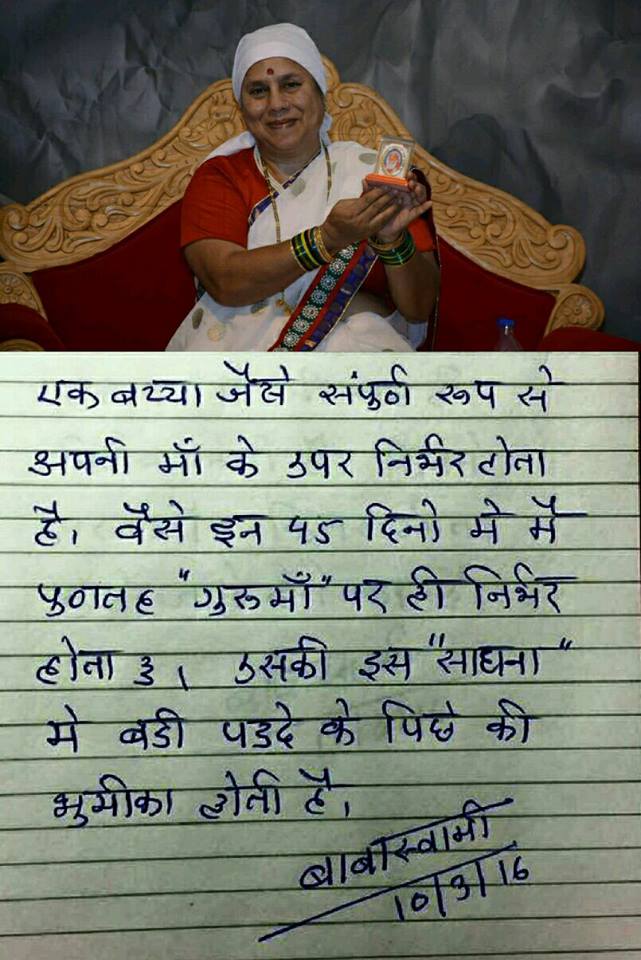 एक बच्चा जैसे संपुर्ण रूप से
अपनी माँ के उपर निर्भर होता
है, वैसे इन ४५ दिनो मे मै
पुणतह "गुरुमाँ" पर ही निर्भर
होता हु । उसकी इस "साधना"
मे बडी पडदे के पिछे की
भुमीका होती है,
बाबास्वामी
10/3/16